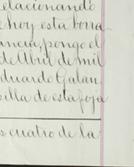 relacionando
e hoy esta borra
ancia, pongo el
de Abril de mil
duardo Galan
silla de esta foja
s cuatro de la